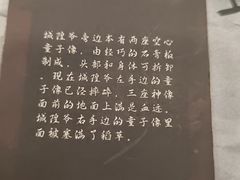 城隍爷旁边本有两座空心
童子像，由轻巧的石膏板
制成，头部和身体可拆卸
。现在城隍爷左手边的童
子像已经摔碎，三座神像
面前的地面上满是血迹。
城隍爷右手边的童子像里
面被塞满了稻草。